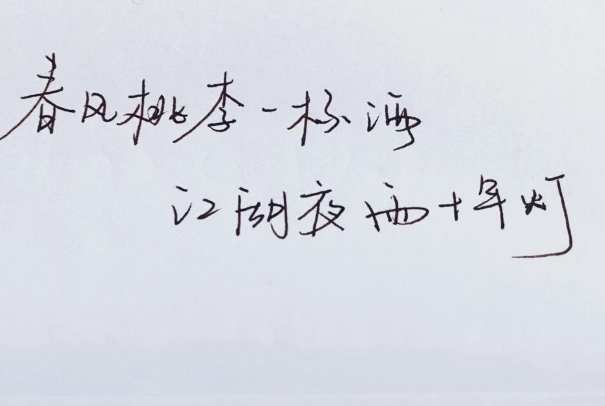 春风桃李一杯酒
江湖夜雨十年灯